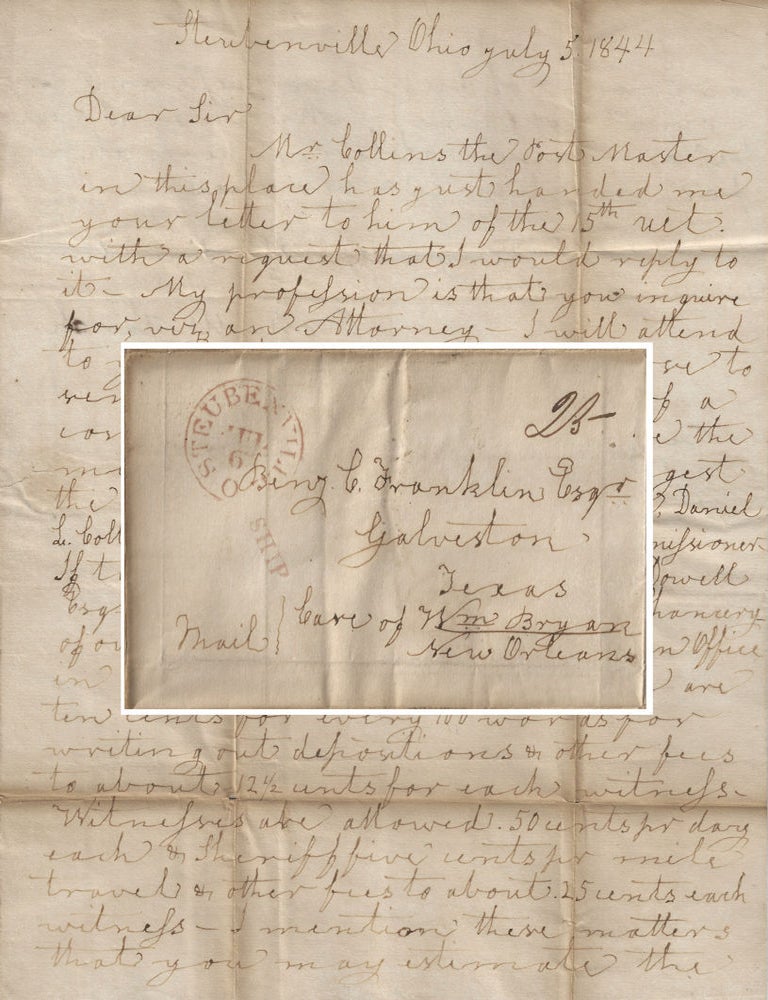 Steubenville Ohio July 5. 1844
Dear Sir
Mr. Collins the Post Master
in this place has just handed me
your letter to him of the 15th ult.
with a request that I would reply to
it – My profession is that you inquire
for, viz, an Attorney – I will attend
to
to
a
cor the
gest
the Daniel
L. Coll missioner
If t Dowell
Esqr hancery
of ou n Office
in are
ten cents for every 100 words for
writing out depositions & other fees
to about 12½ cents for each witness –
Witnesses are allowed. 50 cents pr day
each & Sheriff five cents pr mile
travel & other fees to about 25 cents each
witness – I mention these matters
that you may estimate the
STEUBENVILLE O
JUL
6
25
Benj. C. Franklin Esqr
Galveston
Texas
SHIP
Mail } Care of Wm Bryan
New Orleans